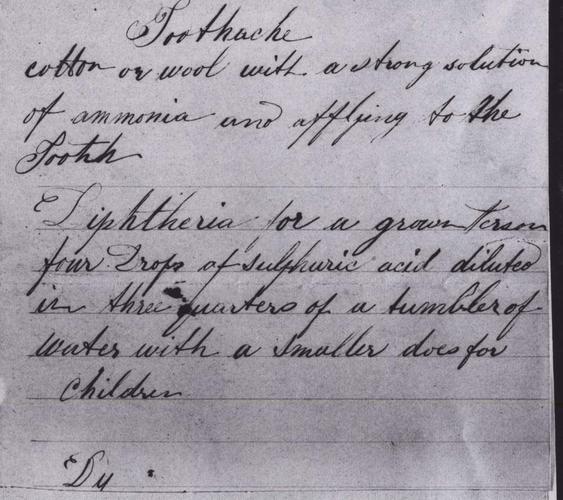 Toothache
cotton or wool with a strong solution
of ammonia and affljing to the
Tooth
Diphtheria for a grown Person
four Drops of sulphuric acid diluted
in three quarters of a tumbler of
water with a smaller does for
children
Dy